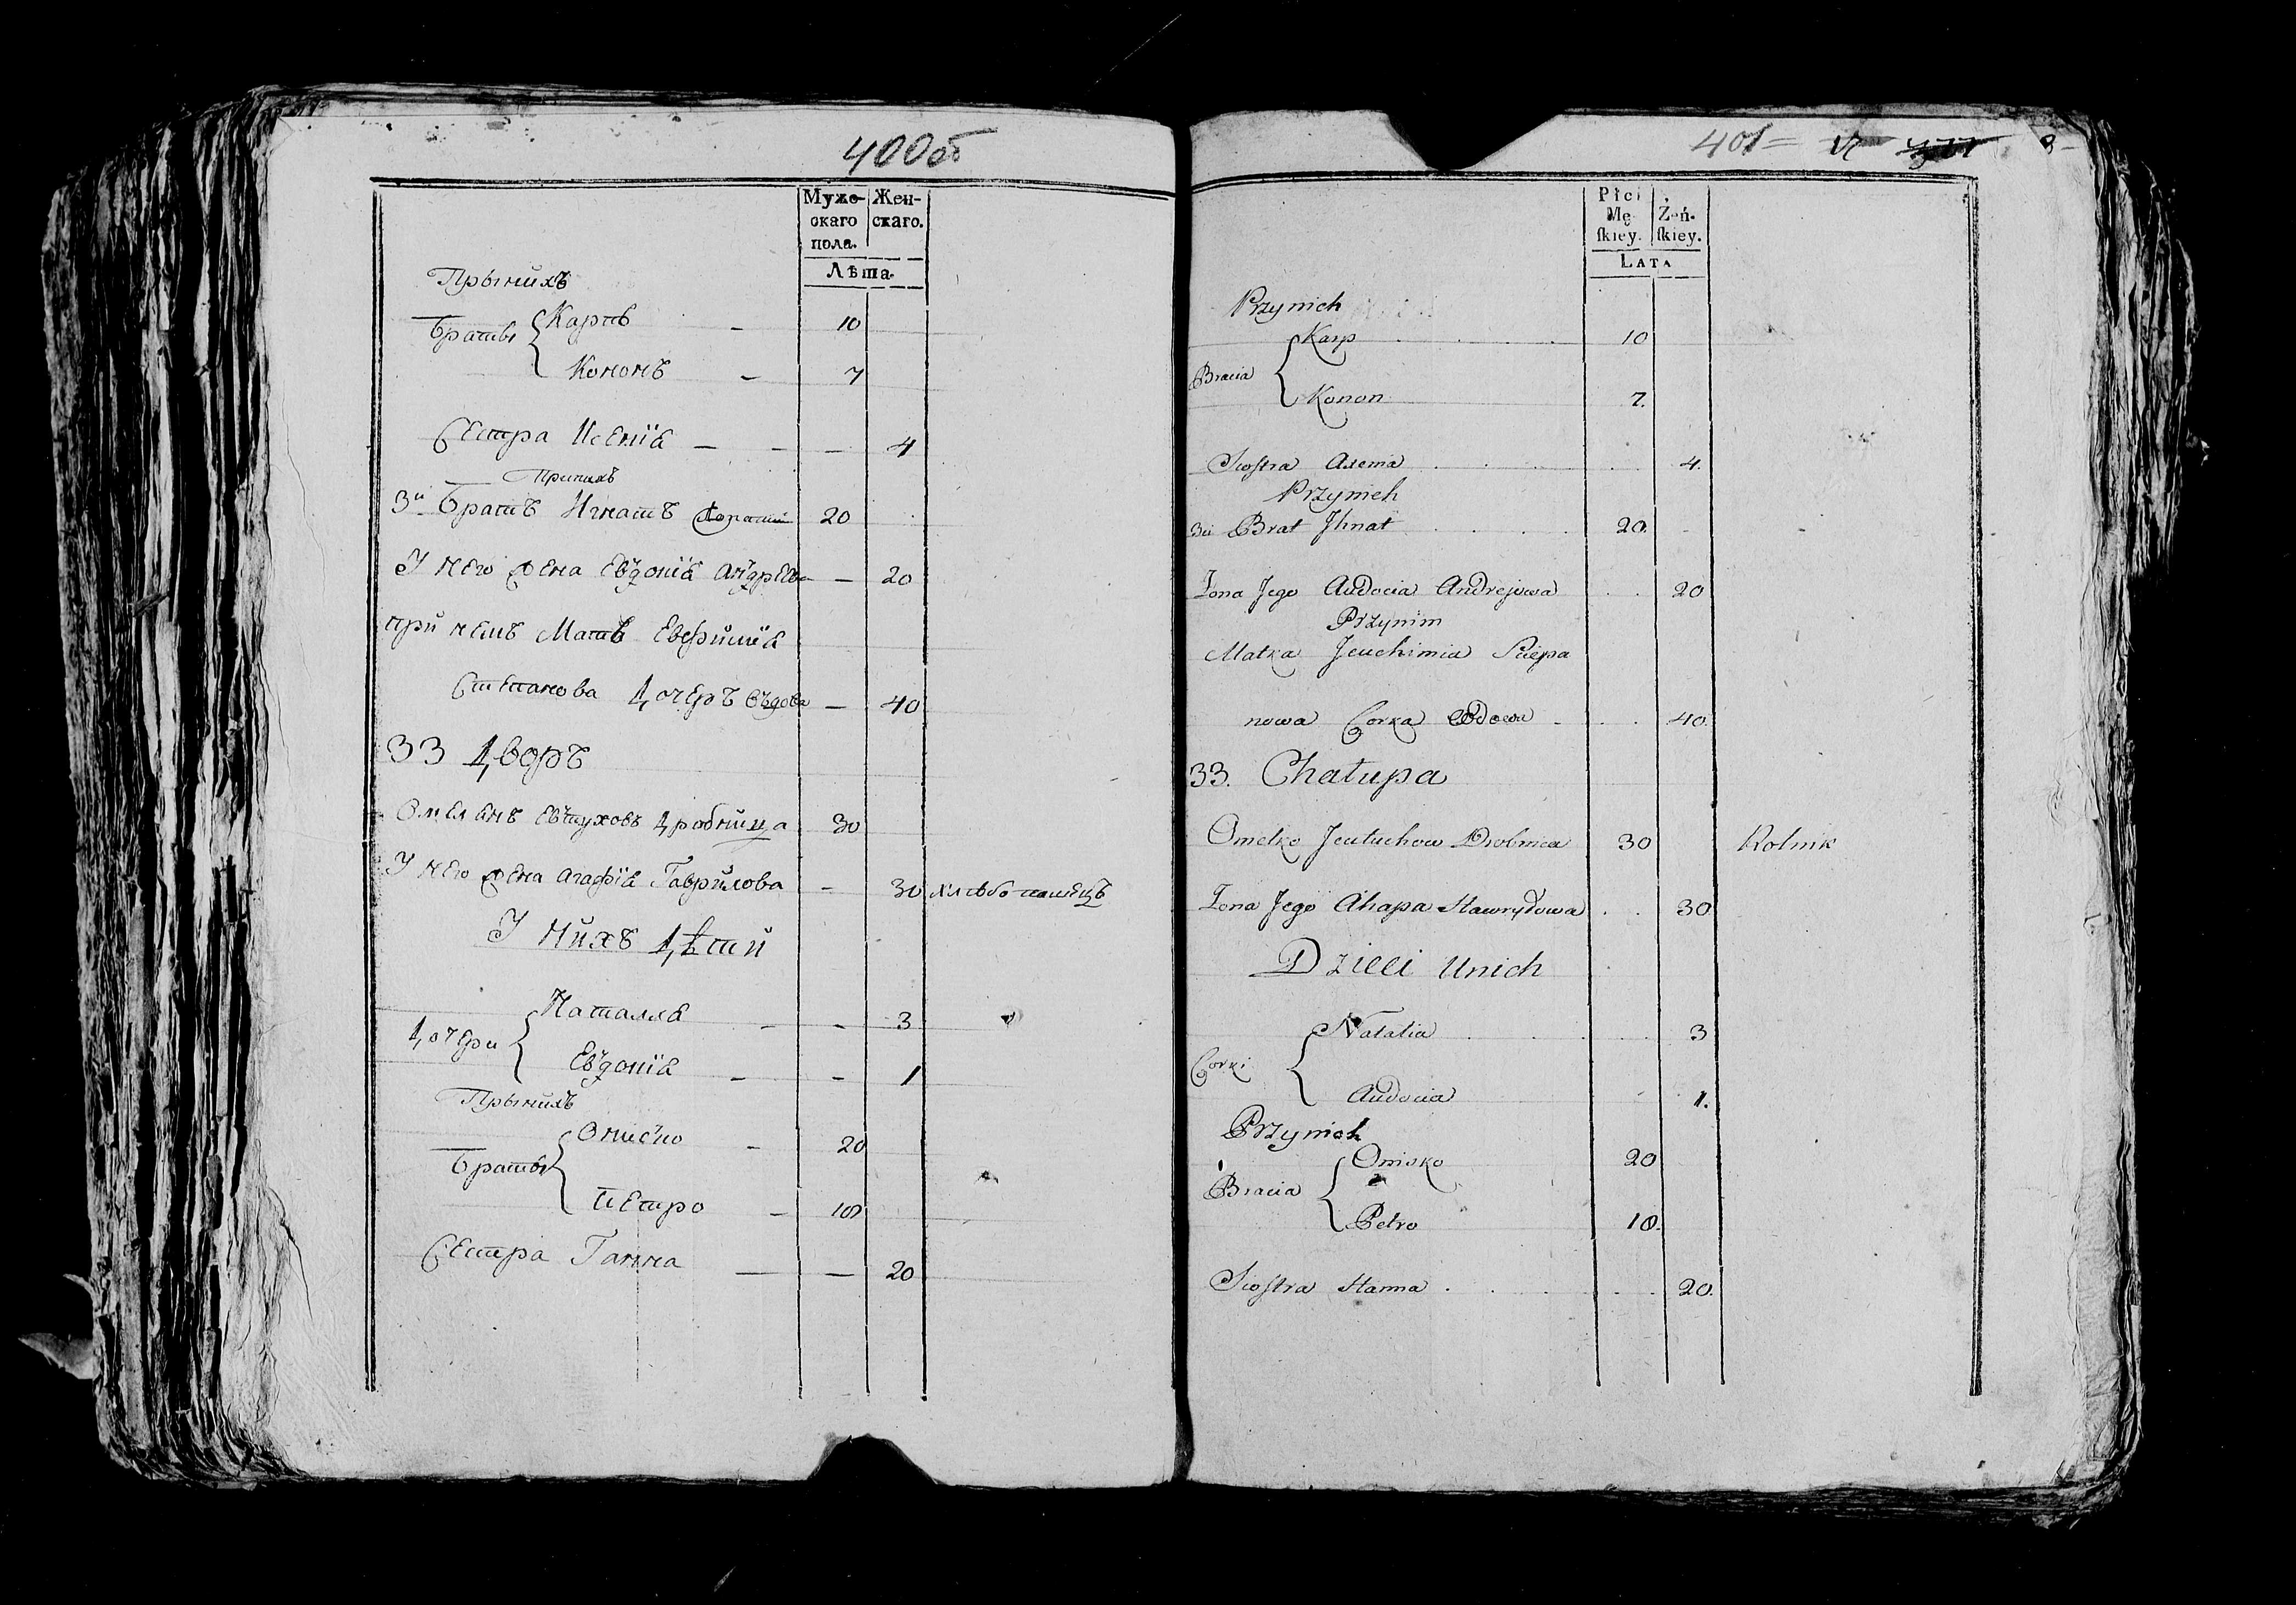 400об
Мужескаго пола. Женскаго.
Лѣта.
Прынихъ
Браты { Карпъ – 10
Кононъ – 7
Сестра Ксеніа – – – 4
Принихъ
3й Братъ Игнатъ 20
У него жена Евдокіа Андреева – 20
при немъ Мать Евфиміа
Степанова дочеръ вдова – 40
33 Дворъ
Омелянъ Евтуховъ Дробница 30
У него жена Агафіа Гаврилова – 30 хлѣбопашецъ
У нихъ дѣти
Дочери { Наталля – – 3
Евдокіа – – 1
Прынихъ
Браты { Онисько – 20
Петро – 10
Сестра Ганна – – 20
401
Płci Męſkiey. Żeńſkiey.
Lata
Przynich
Bracia { Karp 10
Konon 7.
Siostra Axenia 4.
Przynich
3ci Brat Ihnat 20.
Żona Jego Audocia Andrejowa 20
Przynim
Matka Jeuchimia Sciepa
nowa Corka Wdowa 40.
33. Chałupa
Omelko Jeutuchow Drobnica 30 Rolnik
Żona Jego Ahapa Hawryłowa 30
Dzieci Unich
Corki { Natalia 3
Audocia 1.
Przynich
Bracia { Onisko 20
Petro 10.
Siostra Hanna 20.